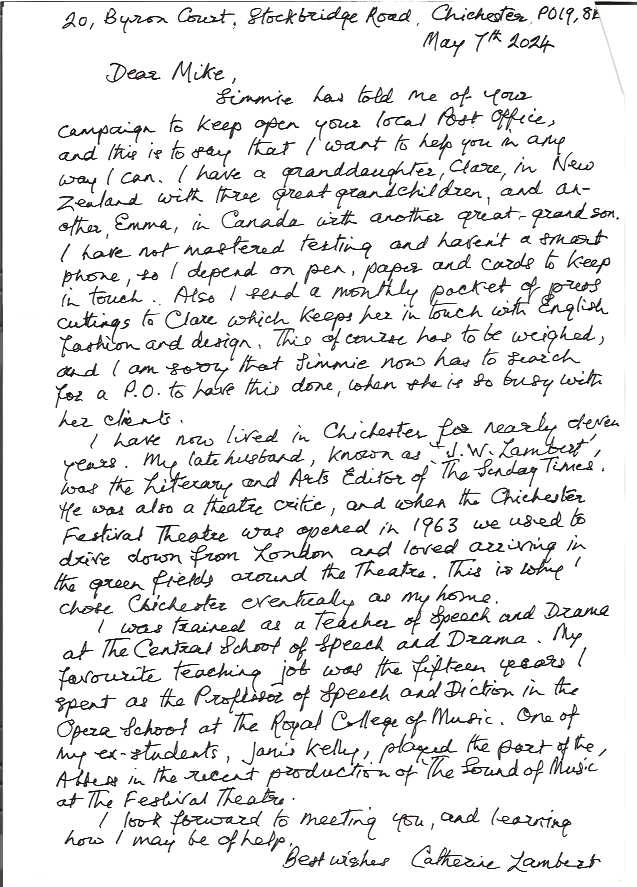 20, Byron Court, Stockbridge Road, Chichester, PO19, 8
May 7th 2024
Dear Mike,
Simmie has told me of your
campaign to keep open your local Post Office,
and this is to say that I want to help you in any
way I can. I have a granddaughter, Clare, in New
Zealand with three great grandchildren, and an-
other, Emma, in Canada with another great-grandson.
I have not mastered texting and haven't a smart
phone, so I depend on pen, paper and cards to keep
in touch. Also I send a monthly packet of press
cuttings to Clare which keeps her in touch with English
fashion and design. This of course has to be weighed,
and I am sorry that Simmie now has to search
for a P.O. to have this done, when she is so busy with
her clients.
I have now lived in Chichester for nearly eleven
years. My late husband, known as 'J.W. Lambert',
was the Literary and Arts Editor of 'The Sunday Times'.
He was also a theatre critic, and when the Chichester
Festival Theatre was opened in 1963 we used to
drive down from London and loved arriving in
the green fields around the Theatre. This is why I
chose Chichester eventually as my home.
I was trained as a teacher of Speech and Drama
at The Central School of Speech and Drama. My
favourite teaching job was the fifteen years I
spent as the Professor of Speech and Diction in the
Opera School at the Royal College of Music. One of
my ex-students, Janis Kelly, played the part of the
Abbess in the recent production of 'The Sound of Music'
at The Festival Theatre.
I look forward to meeting you, and learning
how I may be of help.
Best wishes Catherine Lambert